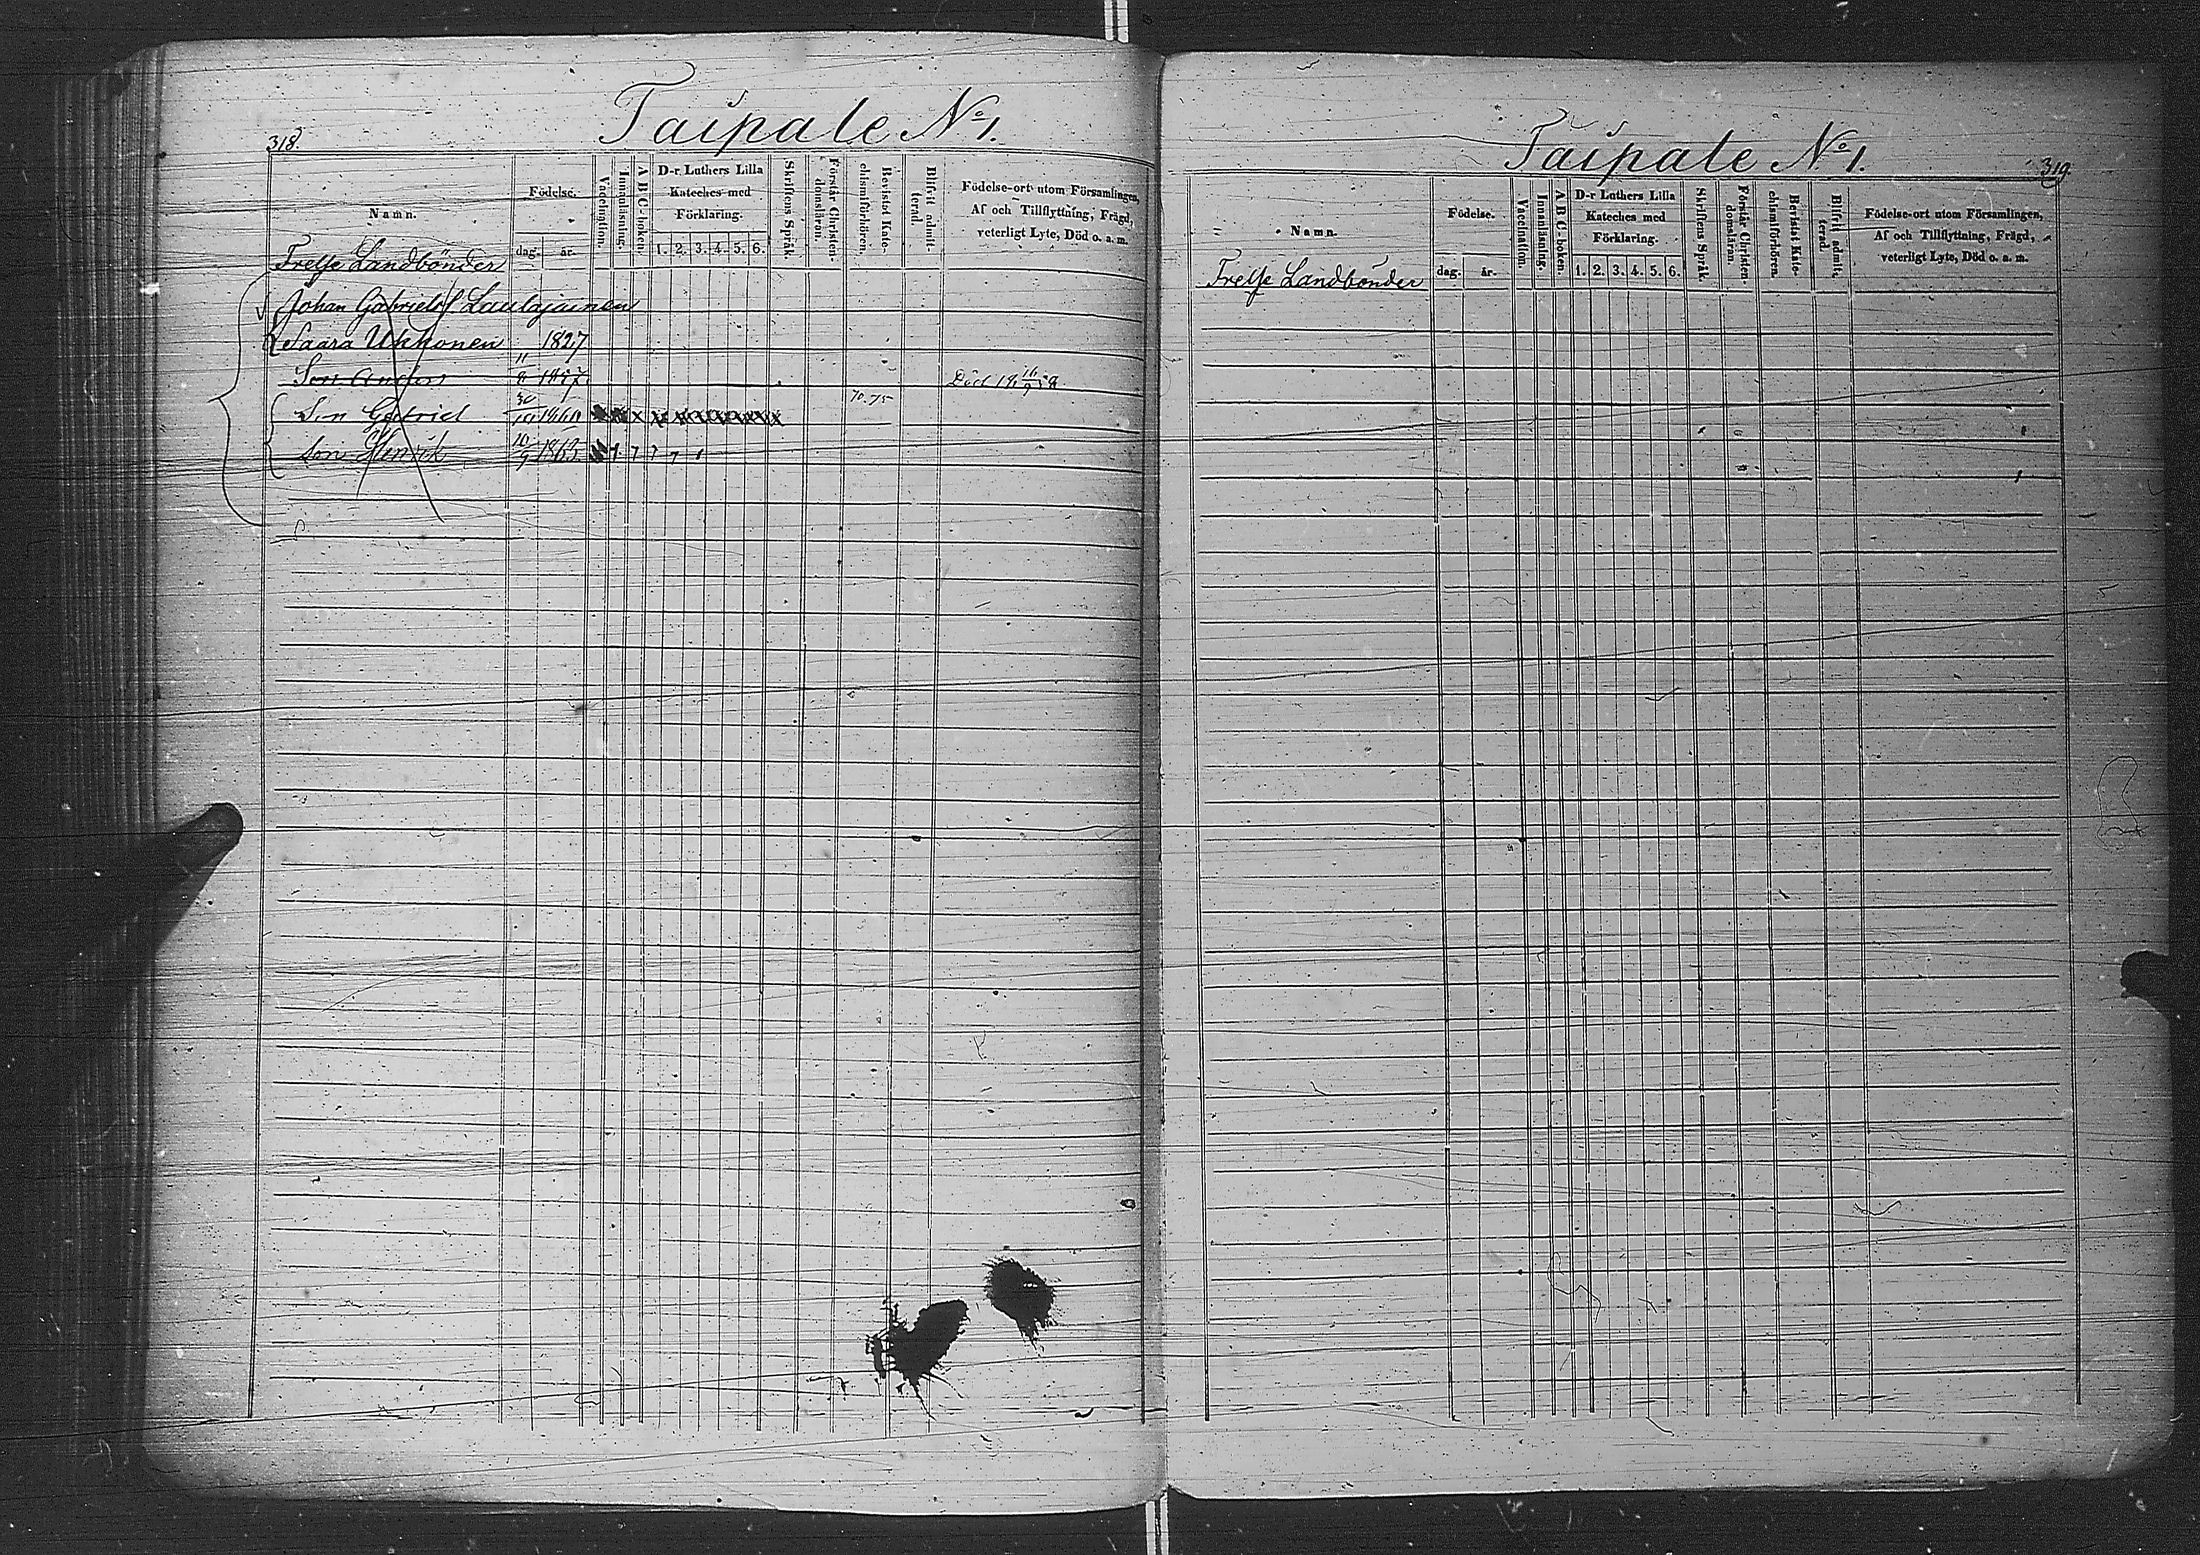 318.
Taipale No 1.
Namn.
Födelse.
dag. år.
Vaccination.
Innanläsning.
A B C-boken.
D-r Luthers Lilla
Kateches med
Förklaring.
1. 2. 3. 4. 5. 6.
Skriftens Språk.
Förstår Christen-
domsläran.
Bevistat Kate-
chismiförhören.
Blifvit admit-
terad.
Födelse-ort utom Församlingen,
Af och Tillflyttning, Frägd,
veterligt Lyte, Död o. a. m.
Frelse Landbönder
Johan Gabrielsf Laulajainen
Saara Ukkonen 1827
Son Anders
Son Gabriel 70.75
Son Henrik 10/9 1863
Taipale No 1.
319.
Namn.
Födelse.
dag. år.
Vaccination.
Innanläsning.
A B C-boken.
D-r Luthers Lilla
Kateches med
Förklaring.
1. 2. 3. 4. 5. 6.
Skriftens Språk.
Förstår Christen-
domsläran.
Bevistat Kate-
chismiförhören.
Blifvit admit-
terad.
Födelse-ort utom Församlingen,
Af och Tillflyttning, Frägd,
veterligt Lyte, Död o. a. m.
Frelse Landbönder